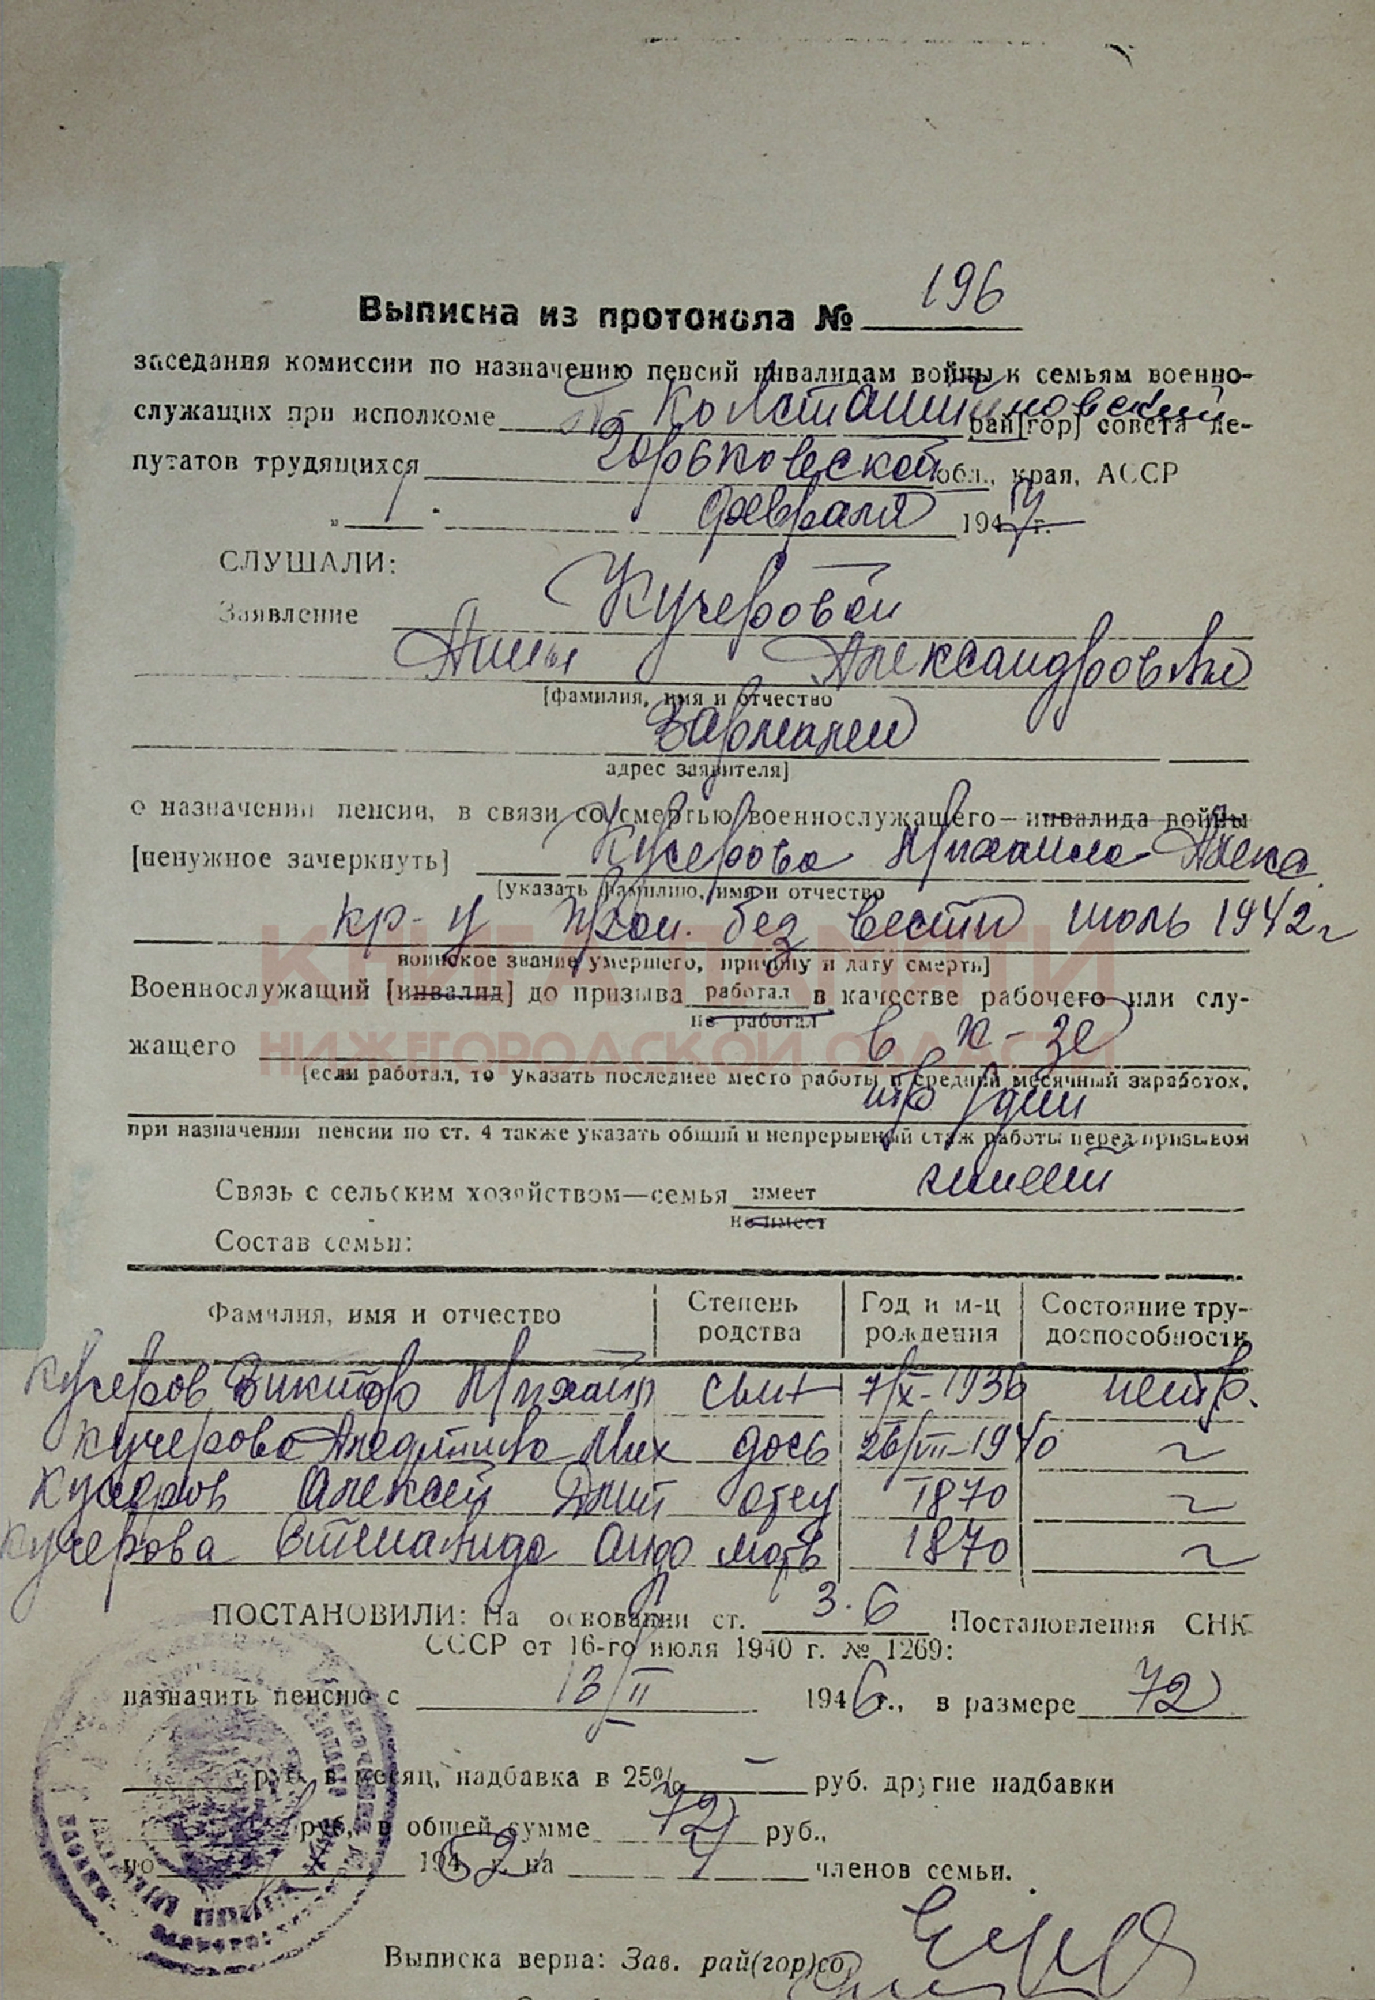 Выписка из протокола № 196
заседания комиссии по назначению пенсий инвалидам войны и семьям военно-
служащих при исполкоме рай[гор] совета де-
путатов трудящихся Горьковской обл., края, АССР
„ 1 " февраля 1947 г.
СЛУШАЛИ:
Заявление Кучеровой
Анны Александровны
[фамилия, имя и отчество
адрес заявителя]
о назначении пенсии, в связи со смертью военнослужащего—инвалида войны
[ненужное зачеркнуть] Кучерова Михаила Алекс
[указать фамилию, имя и отчество
кр-ц проп. без вести июль 1942 г
воинское звание умершего, причину и дату смерти]
КНИГА ПАМЯТИ
Военнослужащий [инвалид] до призыва работал в качестве рабочего или слу-
не работал
жащего в к-зе
НИЖЕГОРОДСКОЙ ОБЛАСТИ
[если работал, то указать последнее место работы и средний месячный заработок,
при назначении пенсии по ст. 4 также указать общий и непрерывный стаж работы перед призывом
Связь с сельским хозяйством—семья имеет имеет
не имеет
Состав семьи:
Фамилия, имя и отчество Степень родства Год и м-ц рождения Состояние тру-доспособности
Кучеров Виктор Михайл сын 7/X-1936 нетр.
Кучерова Мих дочь 26/VII-1940 ~
Кучеров Алексей Дмит отец 1870 ~
Кучерова мать 1870 ~
ПОСТАНОВИЛИ: На основании ст. 3.6 Постановления СНК
СССР от 16-го июля 1940 г. № 1269:
назначить пенсию с 13/II 1946 г., в размере 72
руб. в месяц, надбавка в 25% — руб. другие надбавки
руб., в общей сумме 72 руб.,
по 1952 г. на 4 членов семьи.
Выписка верна: Зав. рай(гор)со